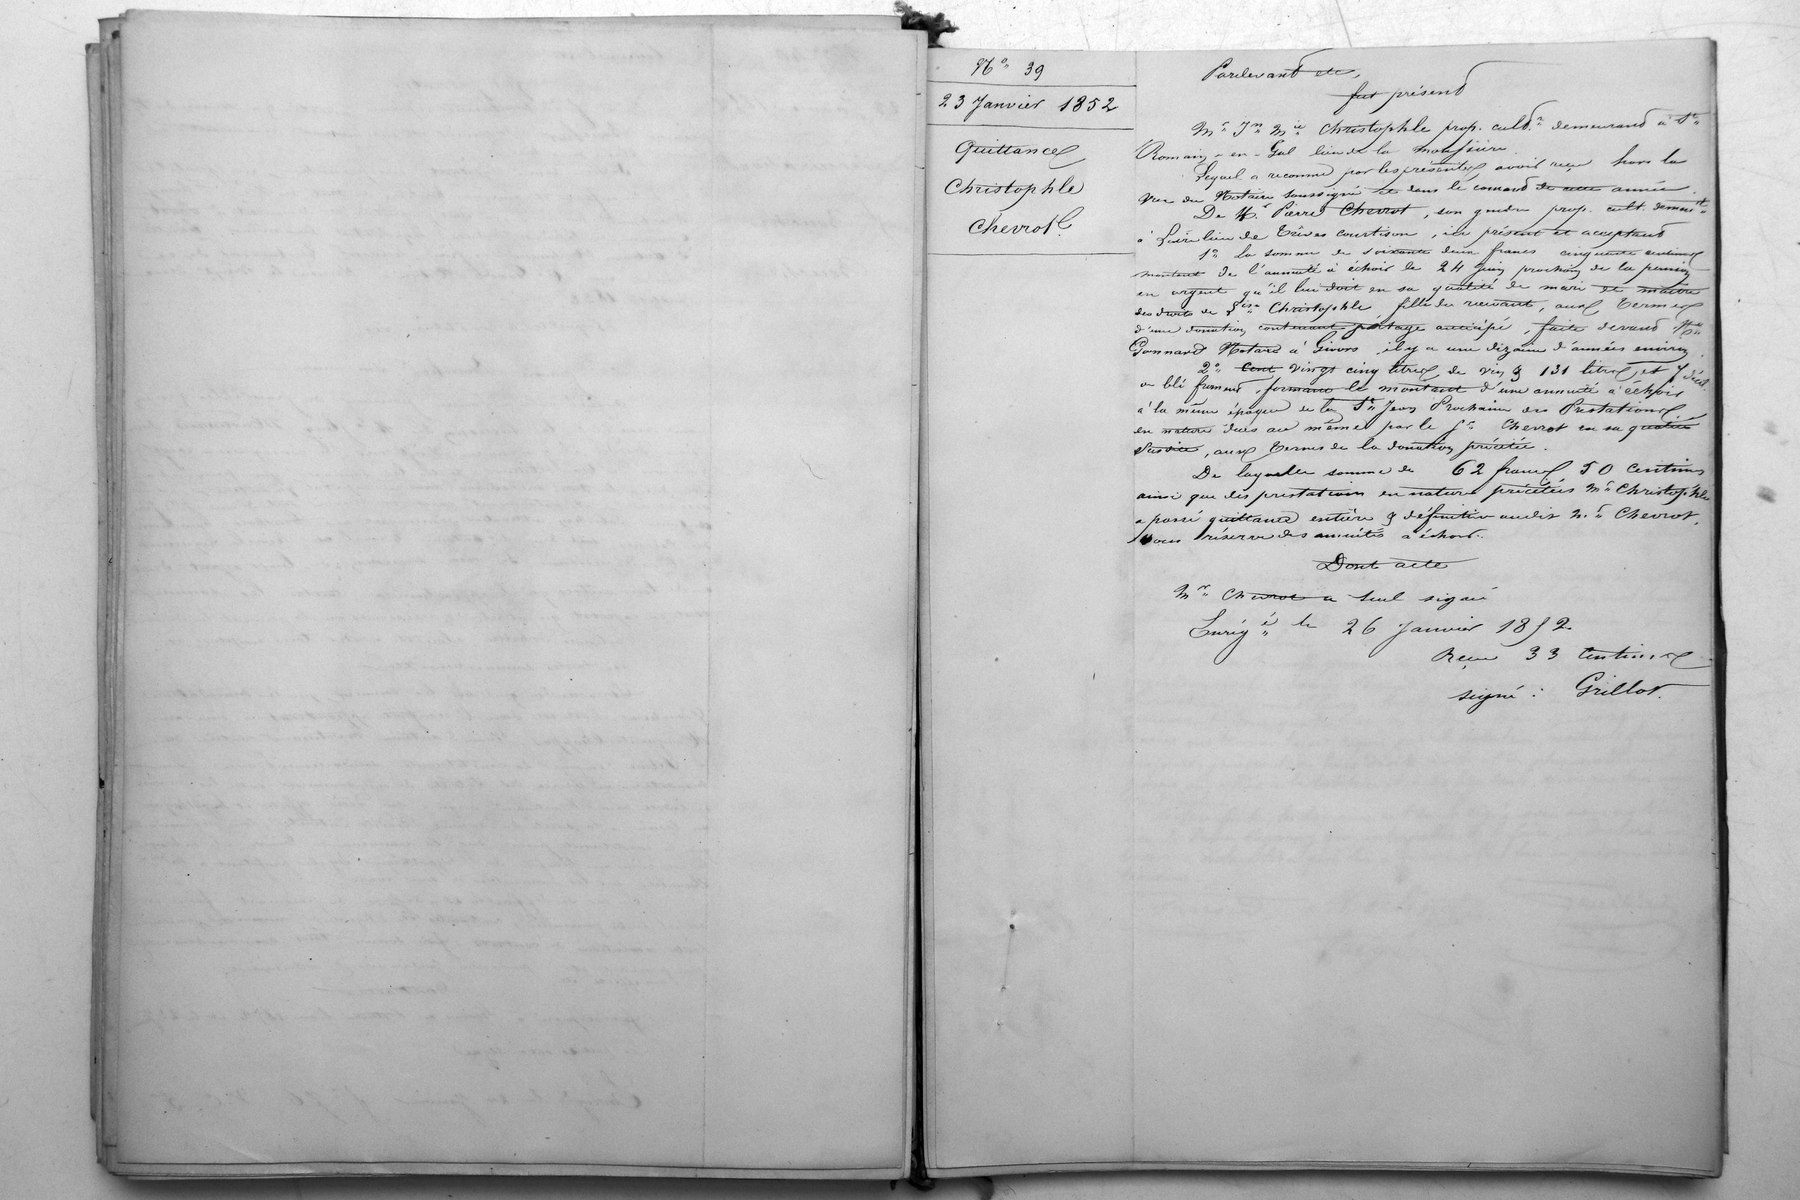 N° 39
23 Janvier 1852
Quittance
Christophle
Chevrot
Pardevant etc.
fut présent
Mr. Jn. Mie Christophle prop. cultr. demeurant à St.
Romain-en-Gal lieu de la
Lequel a reconnu par les présentes avoir reçu hors la
vue du Notaire soussigné et dans le courant de cette année.
De Mr. Pierre Chevrot, son gendre prop. cult. demeurt.
à Loire lieu de Trèves courtison, ici présent et acceptant
1° la somme de soixante deux francs cinquante centimes
montant de l'annuité à échoir le 24 Juin prochain de la pension
en argent qu'il lui doit en sa qualité de mari et maître
des droits de Christophle, fille du recevant, aux termes
d'une donation contenant partage anticipé, faite devant Me
Gonnard Notaire à Givors, il y a une dizaine d'années environ.
2° Cent vingt cinq litres de vin & 131 litres et 7 décil.
de blé froment, formant le montant d'une annuité à échoir
à la même époque de la St. Jean Prochaine des Prestations
en nature dues au même par le sr. Chevrot en sa qualité
susdite, aux termes de la donation précitée.
De laquelle somme de 62 francs 50 centimes
ainsi que des prestations en nature précitées Mr. Christophle
a passé quittance entière & définitive audit Mr. Chevrot,
sous réserve des annuités à échoir.
Dont acte
Mr. Chevrot a seul signé
Enrégé. le 26 Janvier 1852
Reçu 33 Centimes
signé : Grillot.